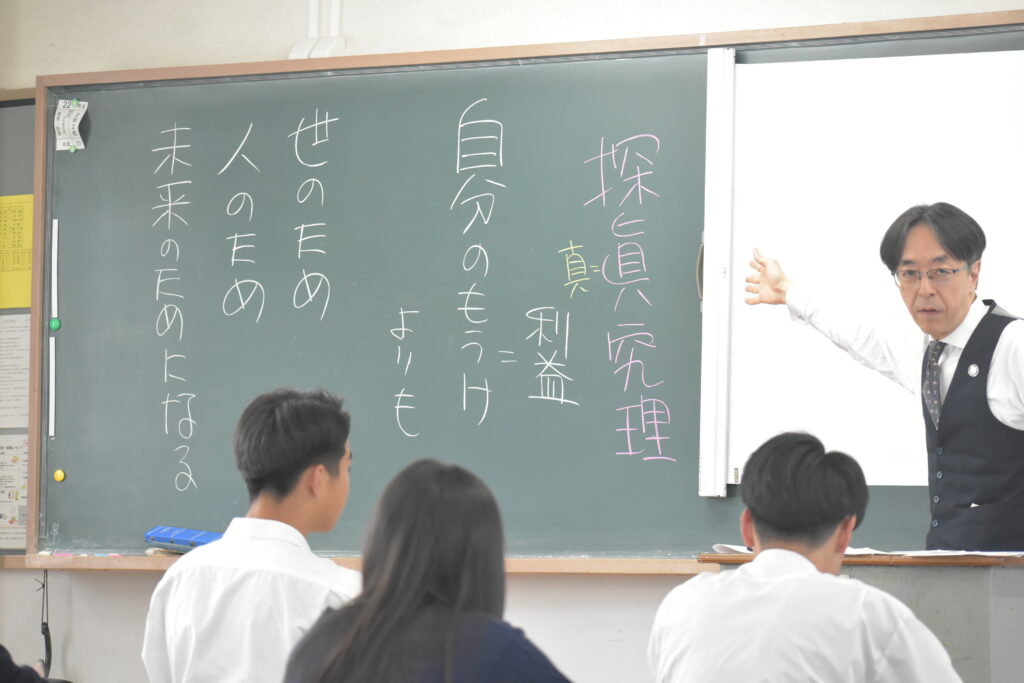 探眞究理
真=
利益
=
自分のもうけ
よりも
世のため
人のため
未来のためになる
22